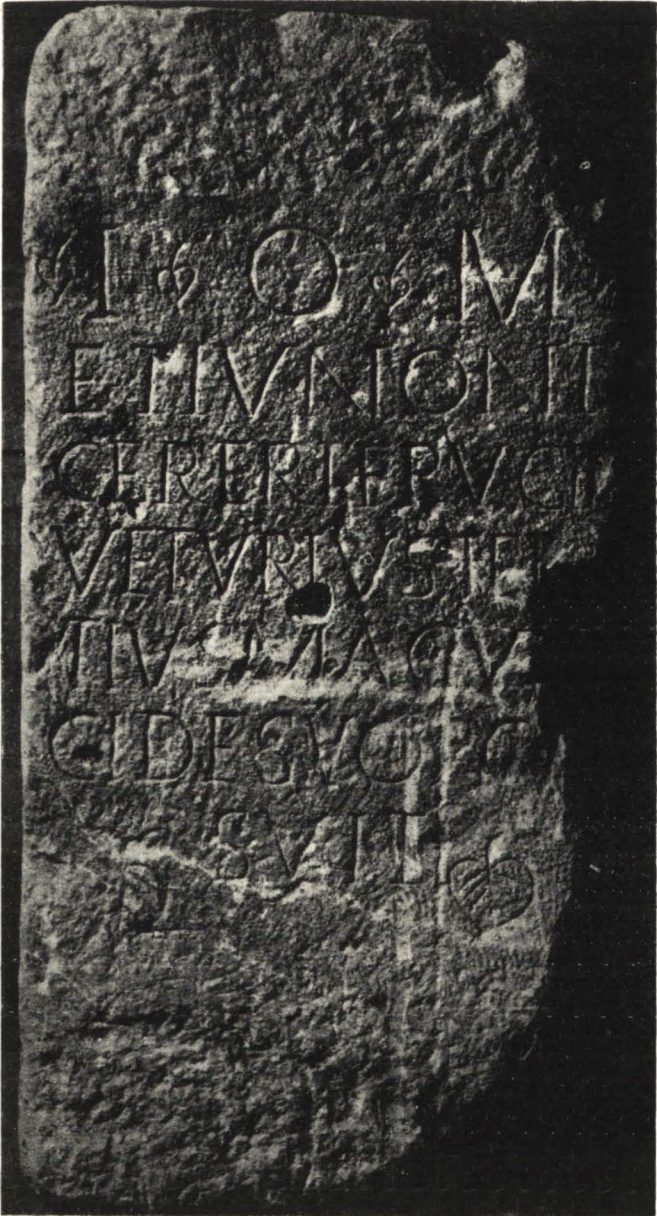 I O M
ET IVNONI
CERERI
VETVRIVS TER
TIVS MAG VI
CI DE SVO PO
SVIT